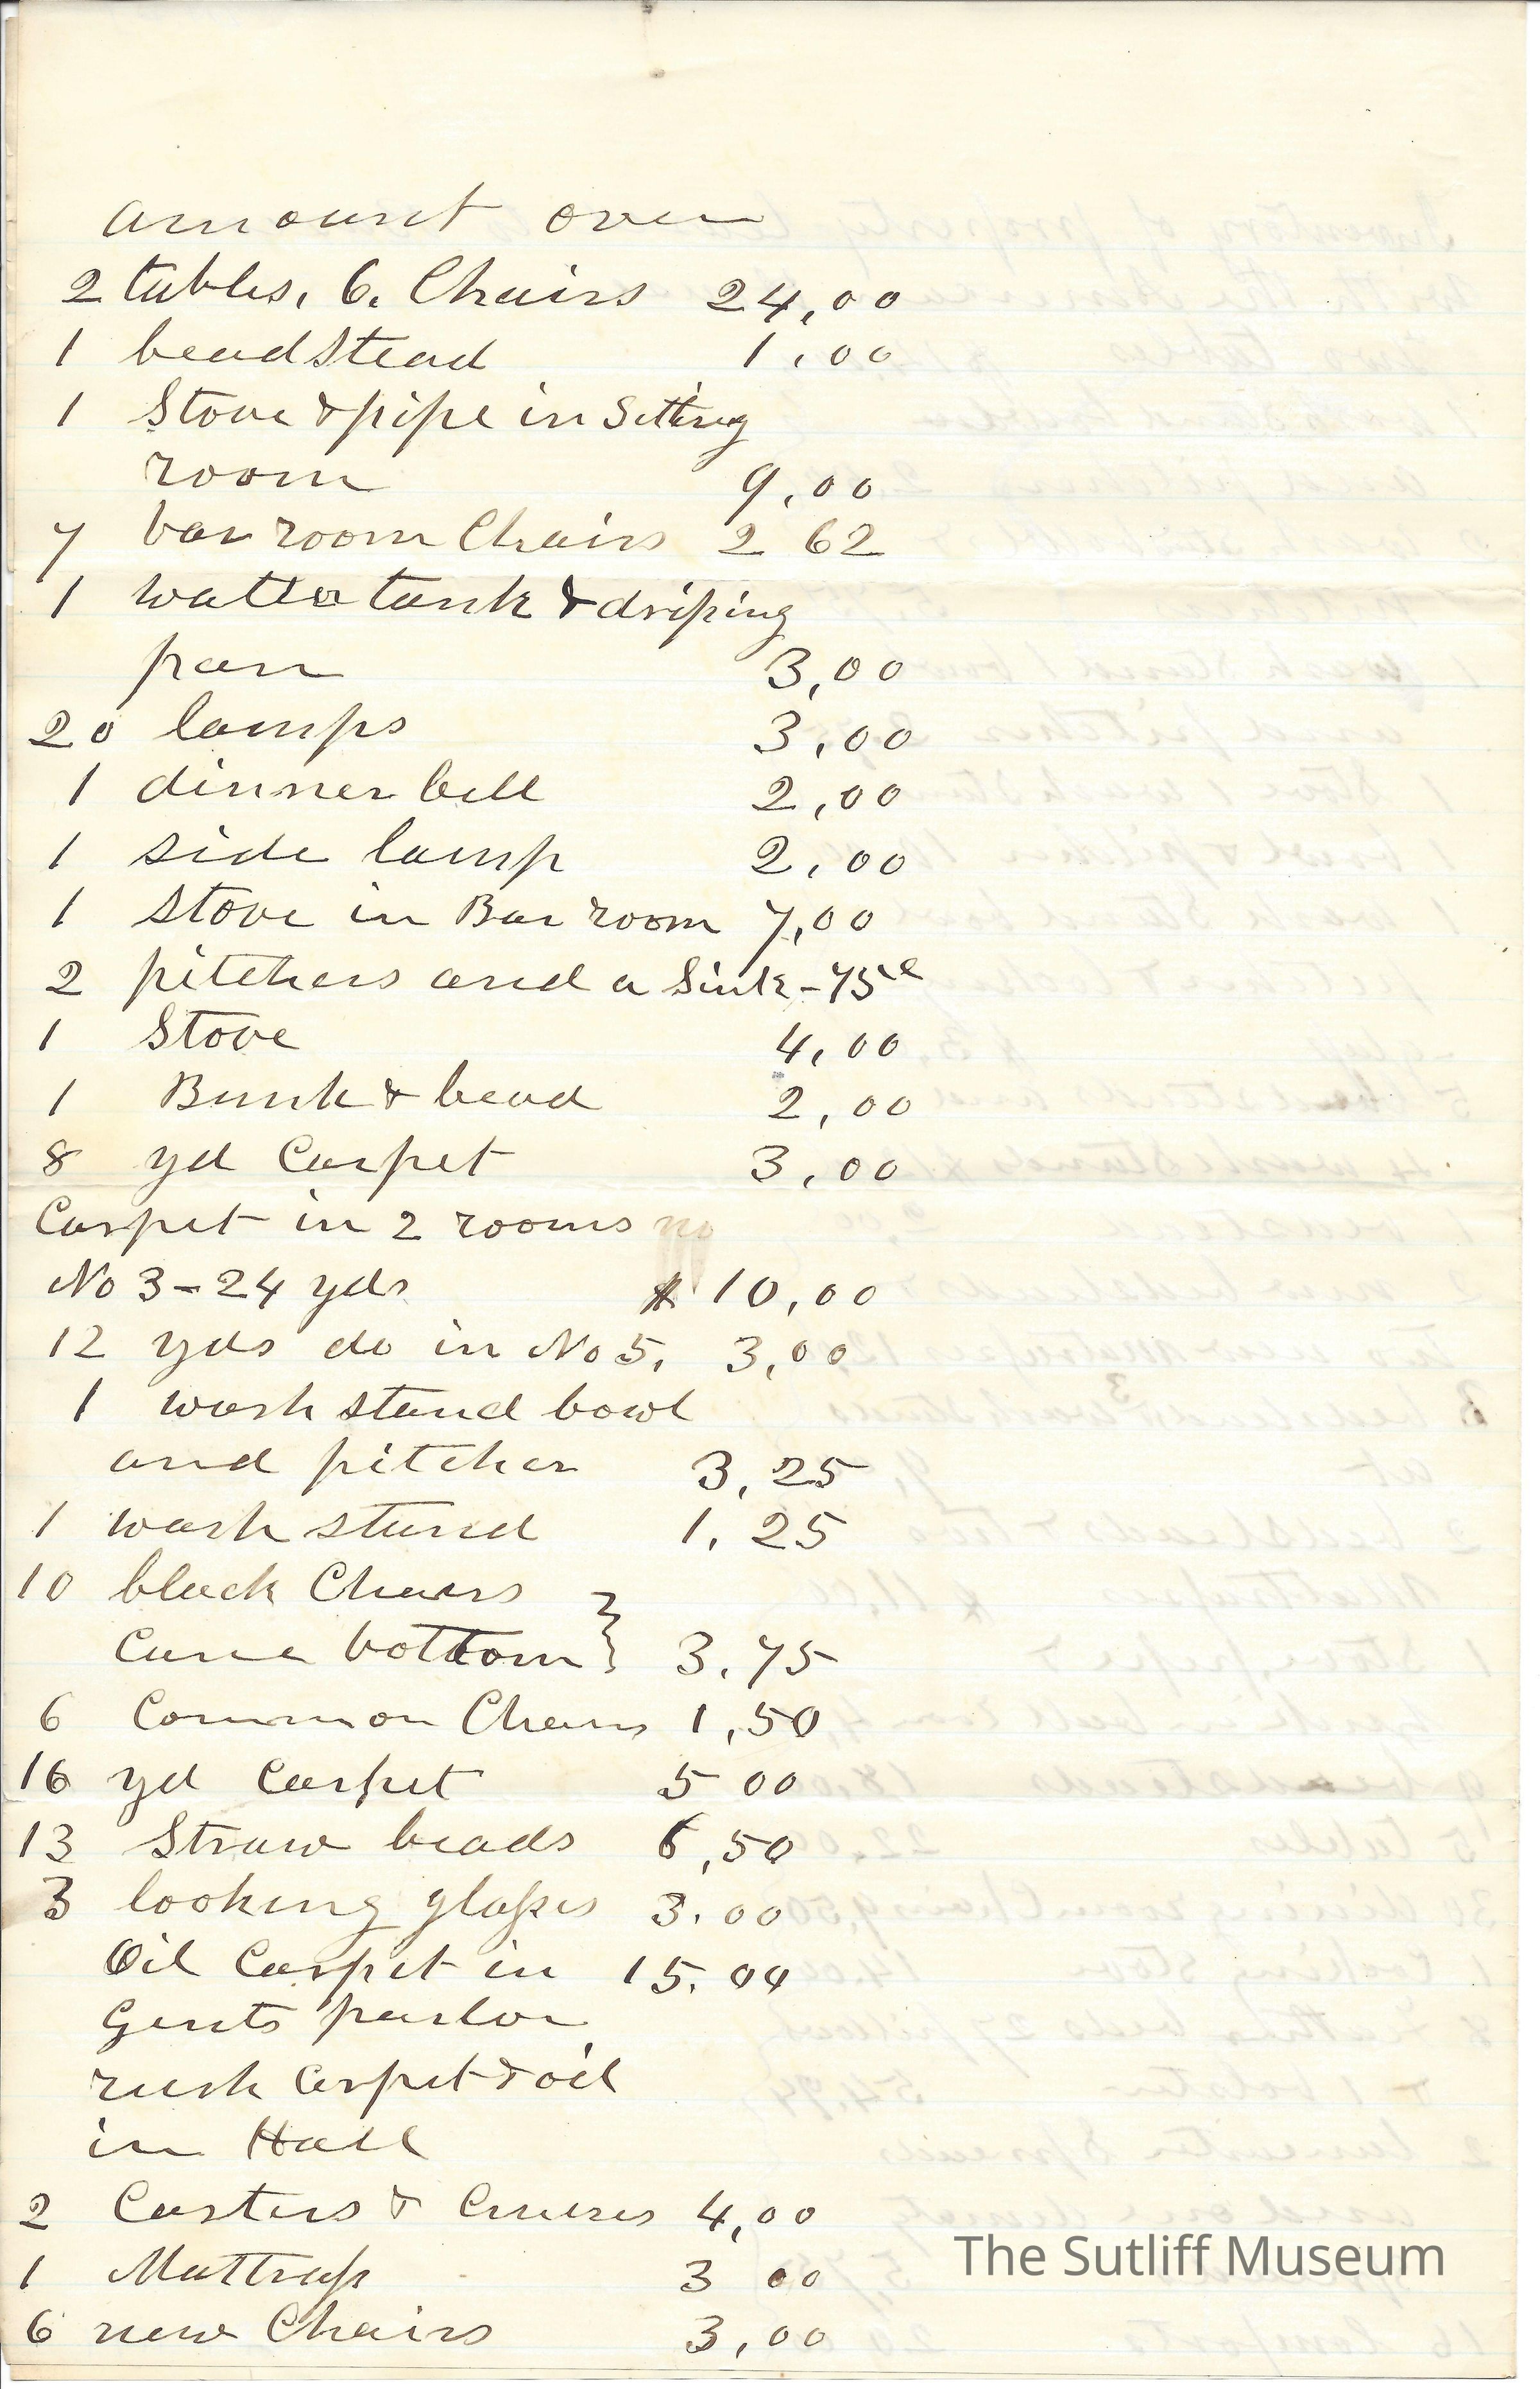 amount over
2 tables, 6, Chairs 24,00
1 beadstead 1,00
1 Stove & pipe in Setting
room 9,00
7 bar room Chairs 2 62
1 watter tank & driping
pan 3,00
20 lamps 3,00
1 dinner bell 2,00
1 side lamp 2,00
1 stove in Bar room 7,00
2 pitchers and a Sink - 75c
1 Stove 4,00
1 Bunk & bead 2,00
8 yd Carpet 3,00
Carpet in 2 rooms no
No 3 - 24 yds $ 10,00
12 yds do in No 5, 3,00
1 wash stand bowl
and pitcher 3,25
1 wash stand 1,25
10 black Chairs
Cane bottom } 3.75
6 Common Chairs 1,50
16 yd Carpet 5 00
13 Straw beads 6,50
3 looking glasses 3.00
Oil Carpet in 15.00
Gents parlor
rush Carpet & oil
in Hall
2 Casters & Cruses 4,00
1 Mattrass 3 00
6 new Chairs 3,00
The Sutliff Museum